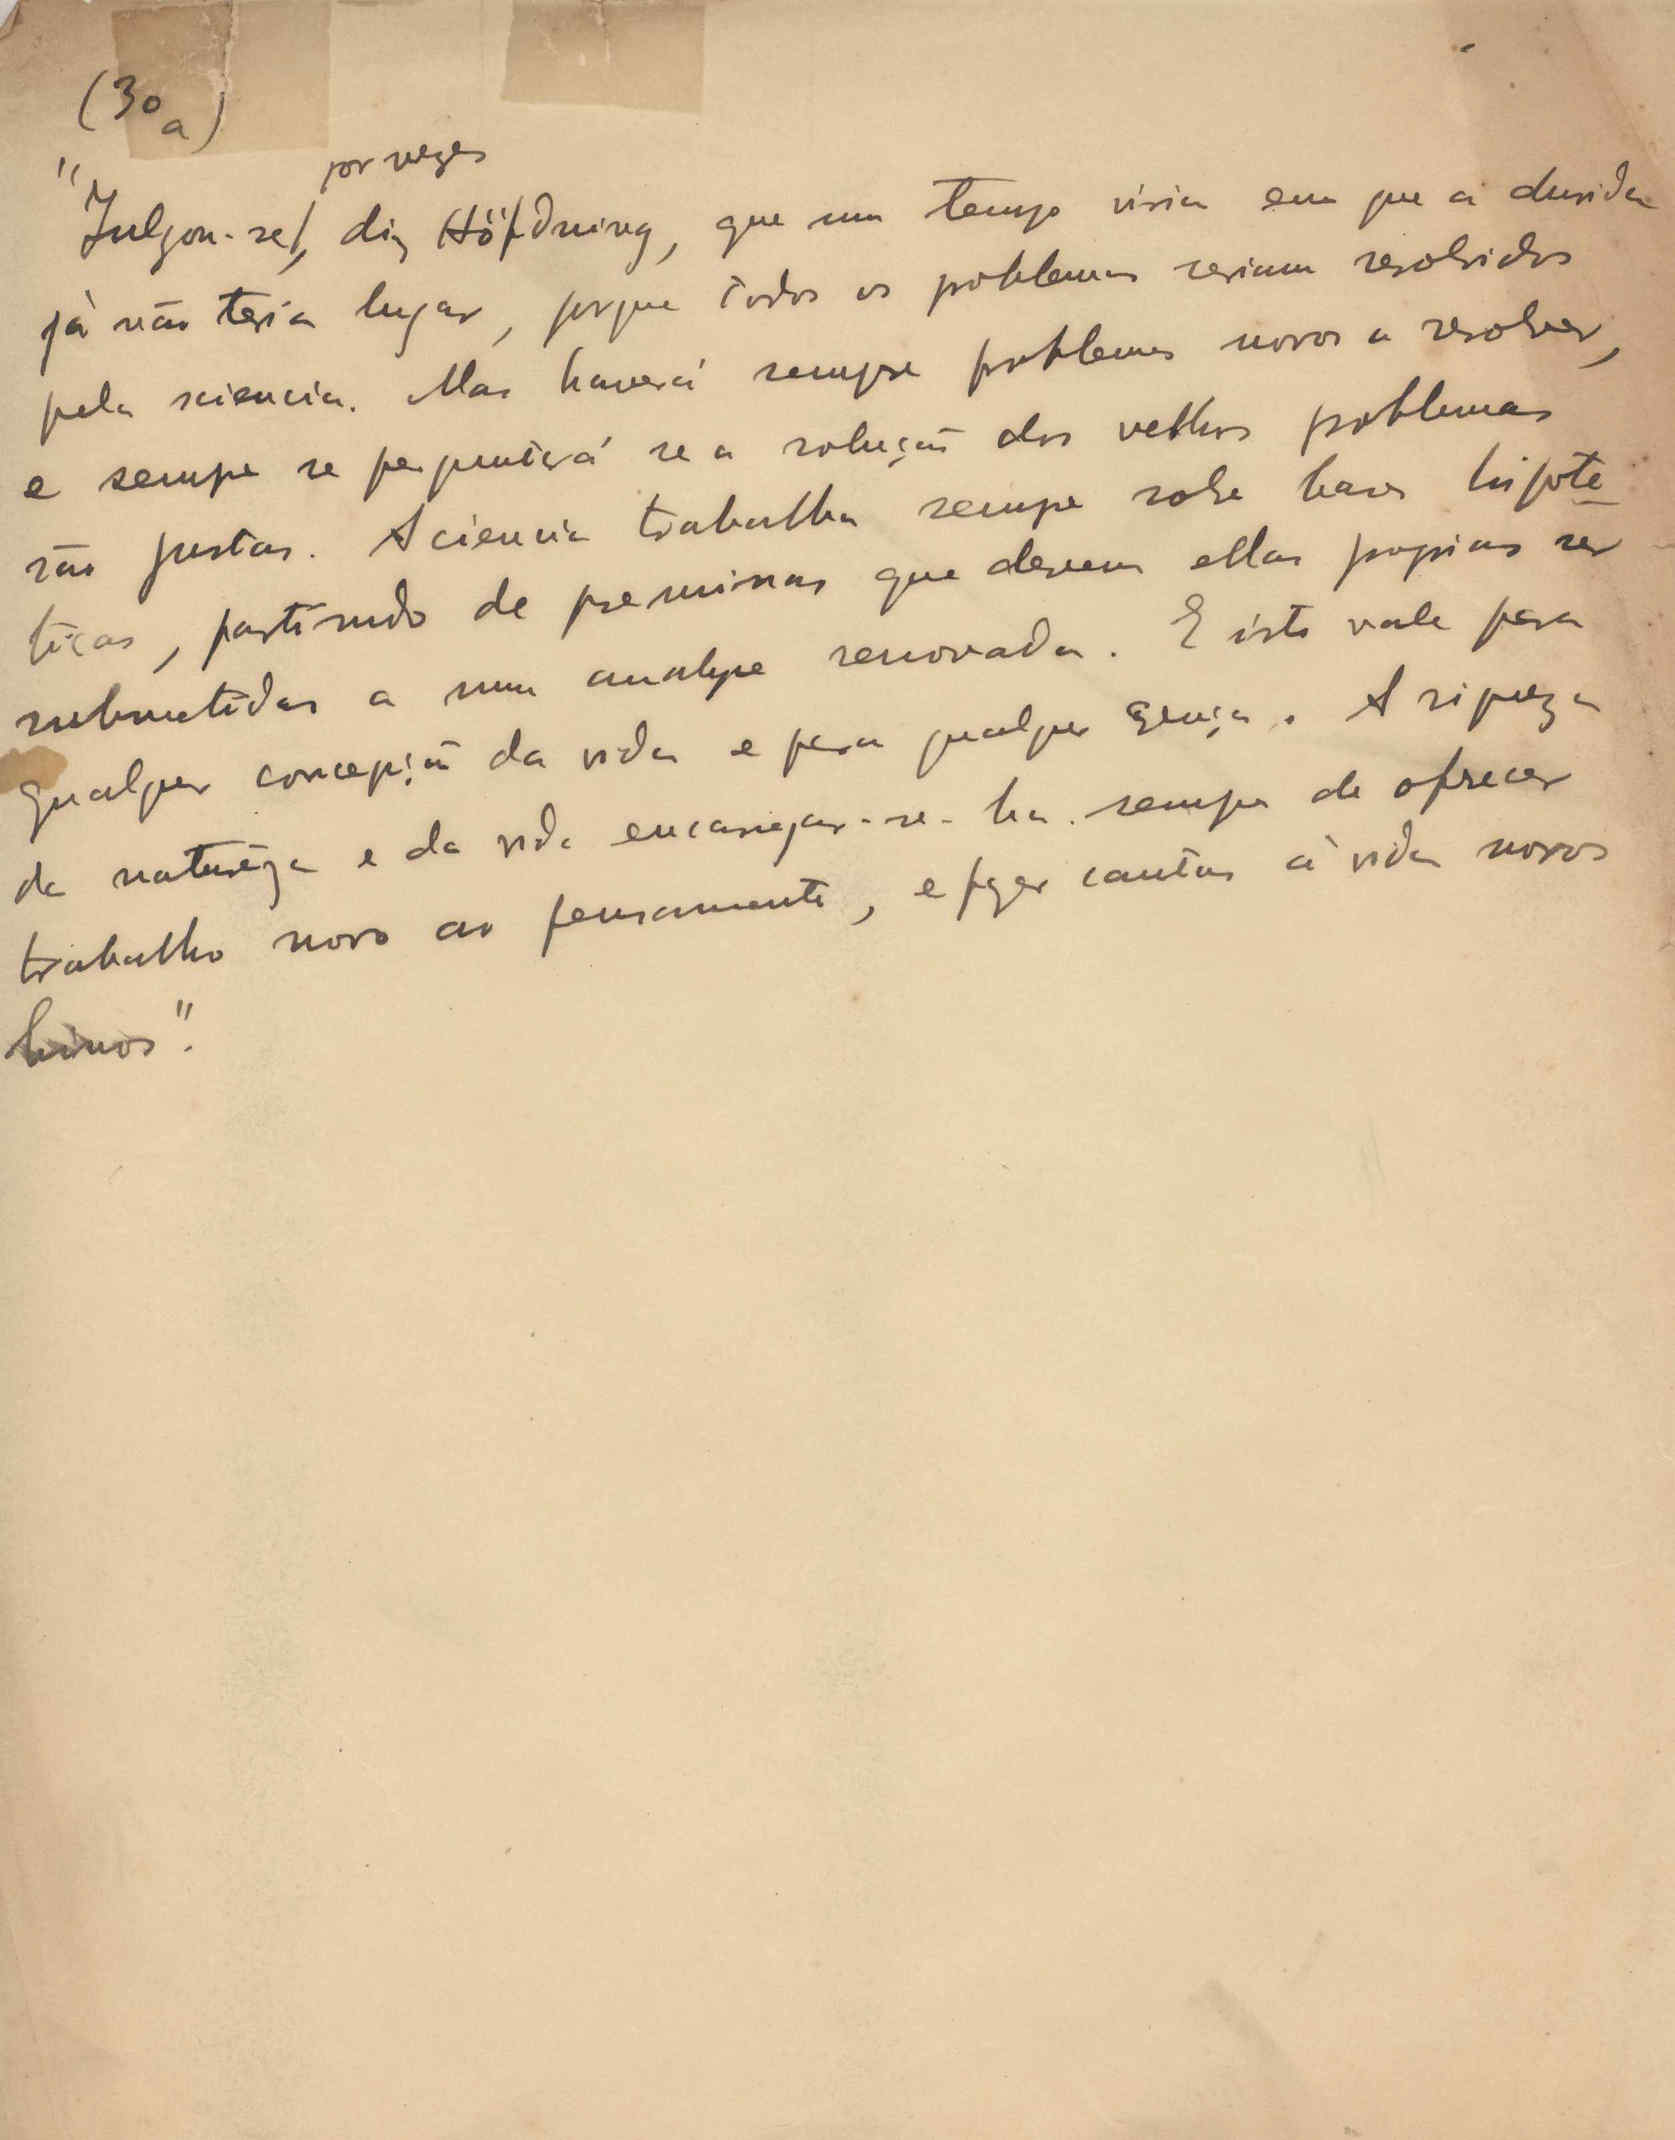 (30a)
por vezes
"Julgou-se, diz Höfdning, que um tempo viria em que a duvida
já não teria lugar, porque todos os problemas seriam resolvidos
pela sciencia. Mas haverá sempre problemas novos a resolver,
e sempre se perguntará se a solução dos velhos problemas
são justas. A ciencia trabalha sempre sobre bases hipoté-
ticas, partindo de premissas que devem ellas proprias ser
submetidas a uma analyse renovada. E isto vale para
qualquer concepção da vida e para qualquer crença. A riqueza
da natureza e da vida encarregar-se-ha sempre de ofrecer
trabalho novo ao pensamento, e fazer cantar á vida novos
hinos".